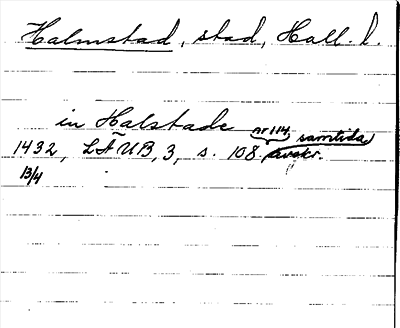 Halmstad, stad, Hall. l.
in Halstade
nr 114 samtida
1432, LÄUB, 3, s. 108. avskr.
13/4